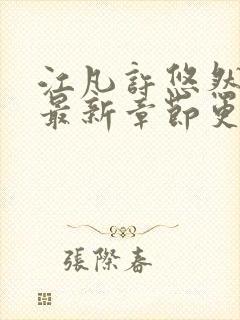 江凡許悠然
最新章節更
張際春